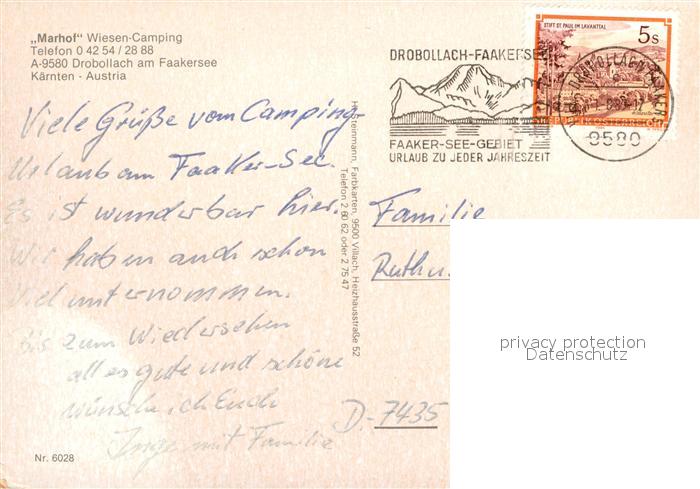 „Marhof“ Wiesen-Camping
Telefon 0 42 54 / 28 88
A-9580 Drobollach am Faakersee
Kärnten - Austria
Viele Grüße vom Camping-
Urlaub am Faaker-See.
Es ist wunderbar hier.
Wir haben auch schon
viel unternommen.
Bis zum Wiedersehen
alles gute und schöne
wünsche ich Euch
Inge mit Familie
Nr. 6028
H. Steinmann, Farbkarten, 9500 Villach, Heizhausstraße 52
Telefon 2 60 62 oder 2 75 47
DROBOLLACH-FAAKERSEE
FAAKER-SEE-GEBIET
URLAUB ZU JEDER JAHRESZEIT
STIFT ST. PAUL IM LAVANTTAL
5 S
9580
Familie
Ruthu
D-7435
privacy protection
Datenschutz